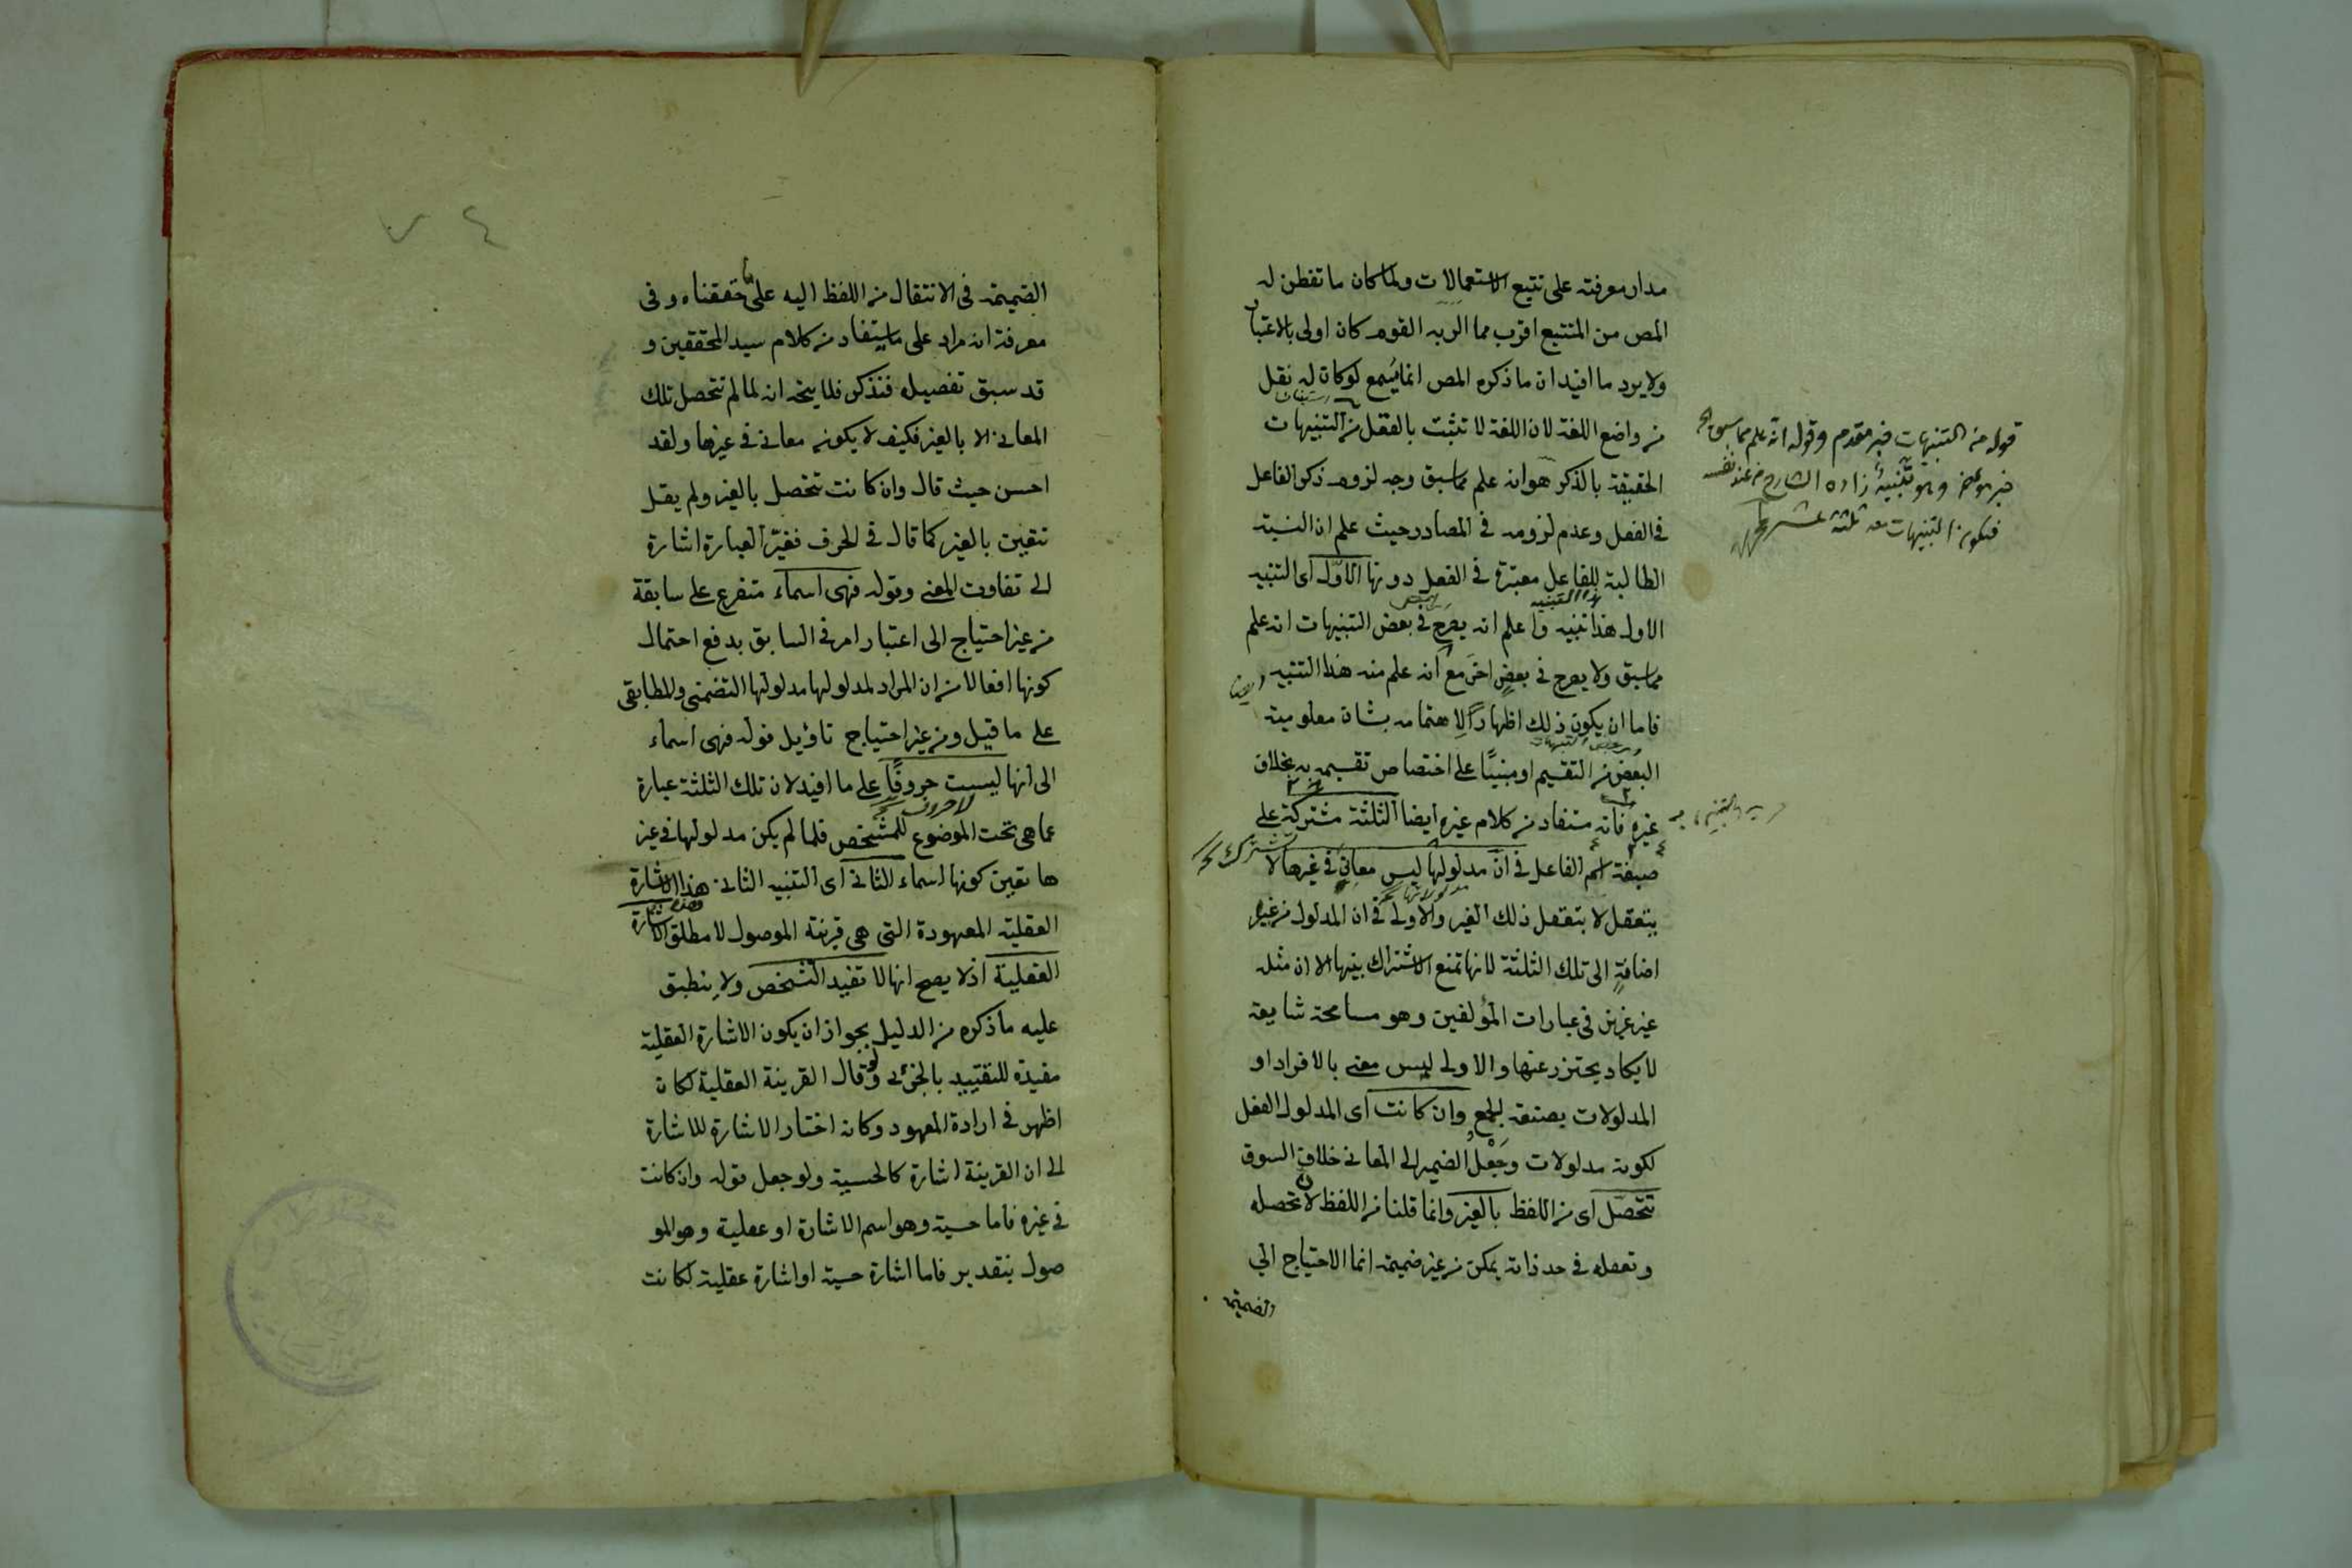 مدار معرفته على تتبع الاستعمالات ولما كان ما تفطن له
المص من المتتبع اقرب مما الربه القوم كان اولى بالاعتبار
ولا يرد ما افيد ان ما ذكره المص انما يُسمع لو كان له نقل
من واضع اللغة لان اللغة لا تثبت بالعقل من التنبيهات
الحقيقة بالذكر هو انه علم مما سبق وجه لزوم ذكر الفاعل
فى الفعل وعدم لزومه فى المصادر حيث علم ان النسبة
الطالبة للفاعل معتبرة فى الفعل دونها الاوّل اى التنبيه
الاول هذا تنبيه واعلم انه يصرح فى بعض التنبيهات انه علم
مما سبق ولا يصرح فى بعض اخر مع انه علم منه هذا التنبيه ايضا
فاما ان يكون ذلك اظهارًا لاهتمامه بشان معلومية
البعض من التقسيم او مبنيًا على اختصاص تقسيمه به بخلاف
غيره فانه مستفاد من كلام غيره ايضا الثلثة مشتركة على
صيغة اسم الفاعل فى ان مدلولها ليس معانى فى غيرها لا
يتعقل لا بتعقل ذلك الغير والاولى فى ان المدلول من غير
اضافةٍ الى تلك الثلثة لانها تمنع الاشتراك بينها الا ان مثله
غير عزيز فى عبارات المؤلفين وهو مسامحة شايعة
لا يكاد يحترز عنها والاولى ليس معنى بالافراد او
المدلولات بصيغة الجمع وان كانت اى المدلول الفعل
لكونه مدلولات وجَعْلُ الضمير الى المعانى خلاف السوق
تتحصّل اى من اللفظ بالغير وانما قلنا من اللفظ لان تحصله
وتعقله فى حد ذاته يمكن من غير ضميمة انما الاحتياج الى
الضميمة
قوله من التنبيهات خبر مقدم وقوله انه علم مما سبق الخ
خبر مؤخر وهو تنبيه زاده الشارح من عند نفسه
فيكون التنبيهات معه ثلثة عشر
الضميمة فى الانتقال من اللفظ اليه على ما حققناه وفى
معرفة انه مراد على ما يستفاد من كلام سيد المحققين و
قد سبق تفصيله فتذكر فلا يتجه انه لما لم تتحصل تلك
المعانى الا بالغير فكيف لا يكون معانى فى غيرها ولقد
احسن حيث قال وان كانت تتحصل بالغير ولم يقل
تتعين بالغير كما قال فى الحرف فغيّر العبارة اشارة
الى تفاوت المعنى وقوله فهى اسماء متفرع على سابقة
من غير احتياج الى اعتبار امر فى السابق يدفع احتمال
كونها افعالا من ان المراد لمدلولها مدلولها التضمنى والمطابقى
على ما قيل ومن غير احتياج تاؤيل قوله فهى اسماء
الى انها ليست حروفًا على ما افيد لان تلك الثلثة عبارة
عما هى تحت الموضوع للمشخص فلما لم يكن مدلولها فى غير
ها تعين كونها اسماء الثانى اى التنبيه الثانى هذا الاشارة
العقلية المعهودة التى هى قرينة الموصول لا مطلق الاشارة
العقلية اذ لا يصح انها لا تفيد التشخص ولا ينطبق
عليه ما ذكره من الدليل بجواز ان يكون الاشارة العقلية
مفيدة للتقييد بالجزئى ولو قال القرينة العقلية لكان
اظهر فى ارادة المعهود وكانه اختار الاشارة للاشارة
الى ان القرينة اشارة كالحسية ولو جعل قوله وان كانت
فى غيره فاما حسية وهو اسم الاشارة او عقلية وهو المو
صول بتقدير فاما اشارة حسية او اشارة عقلية لكانت